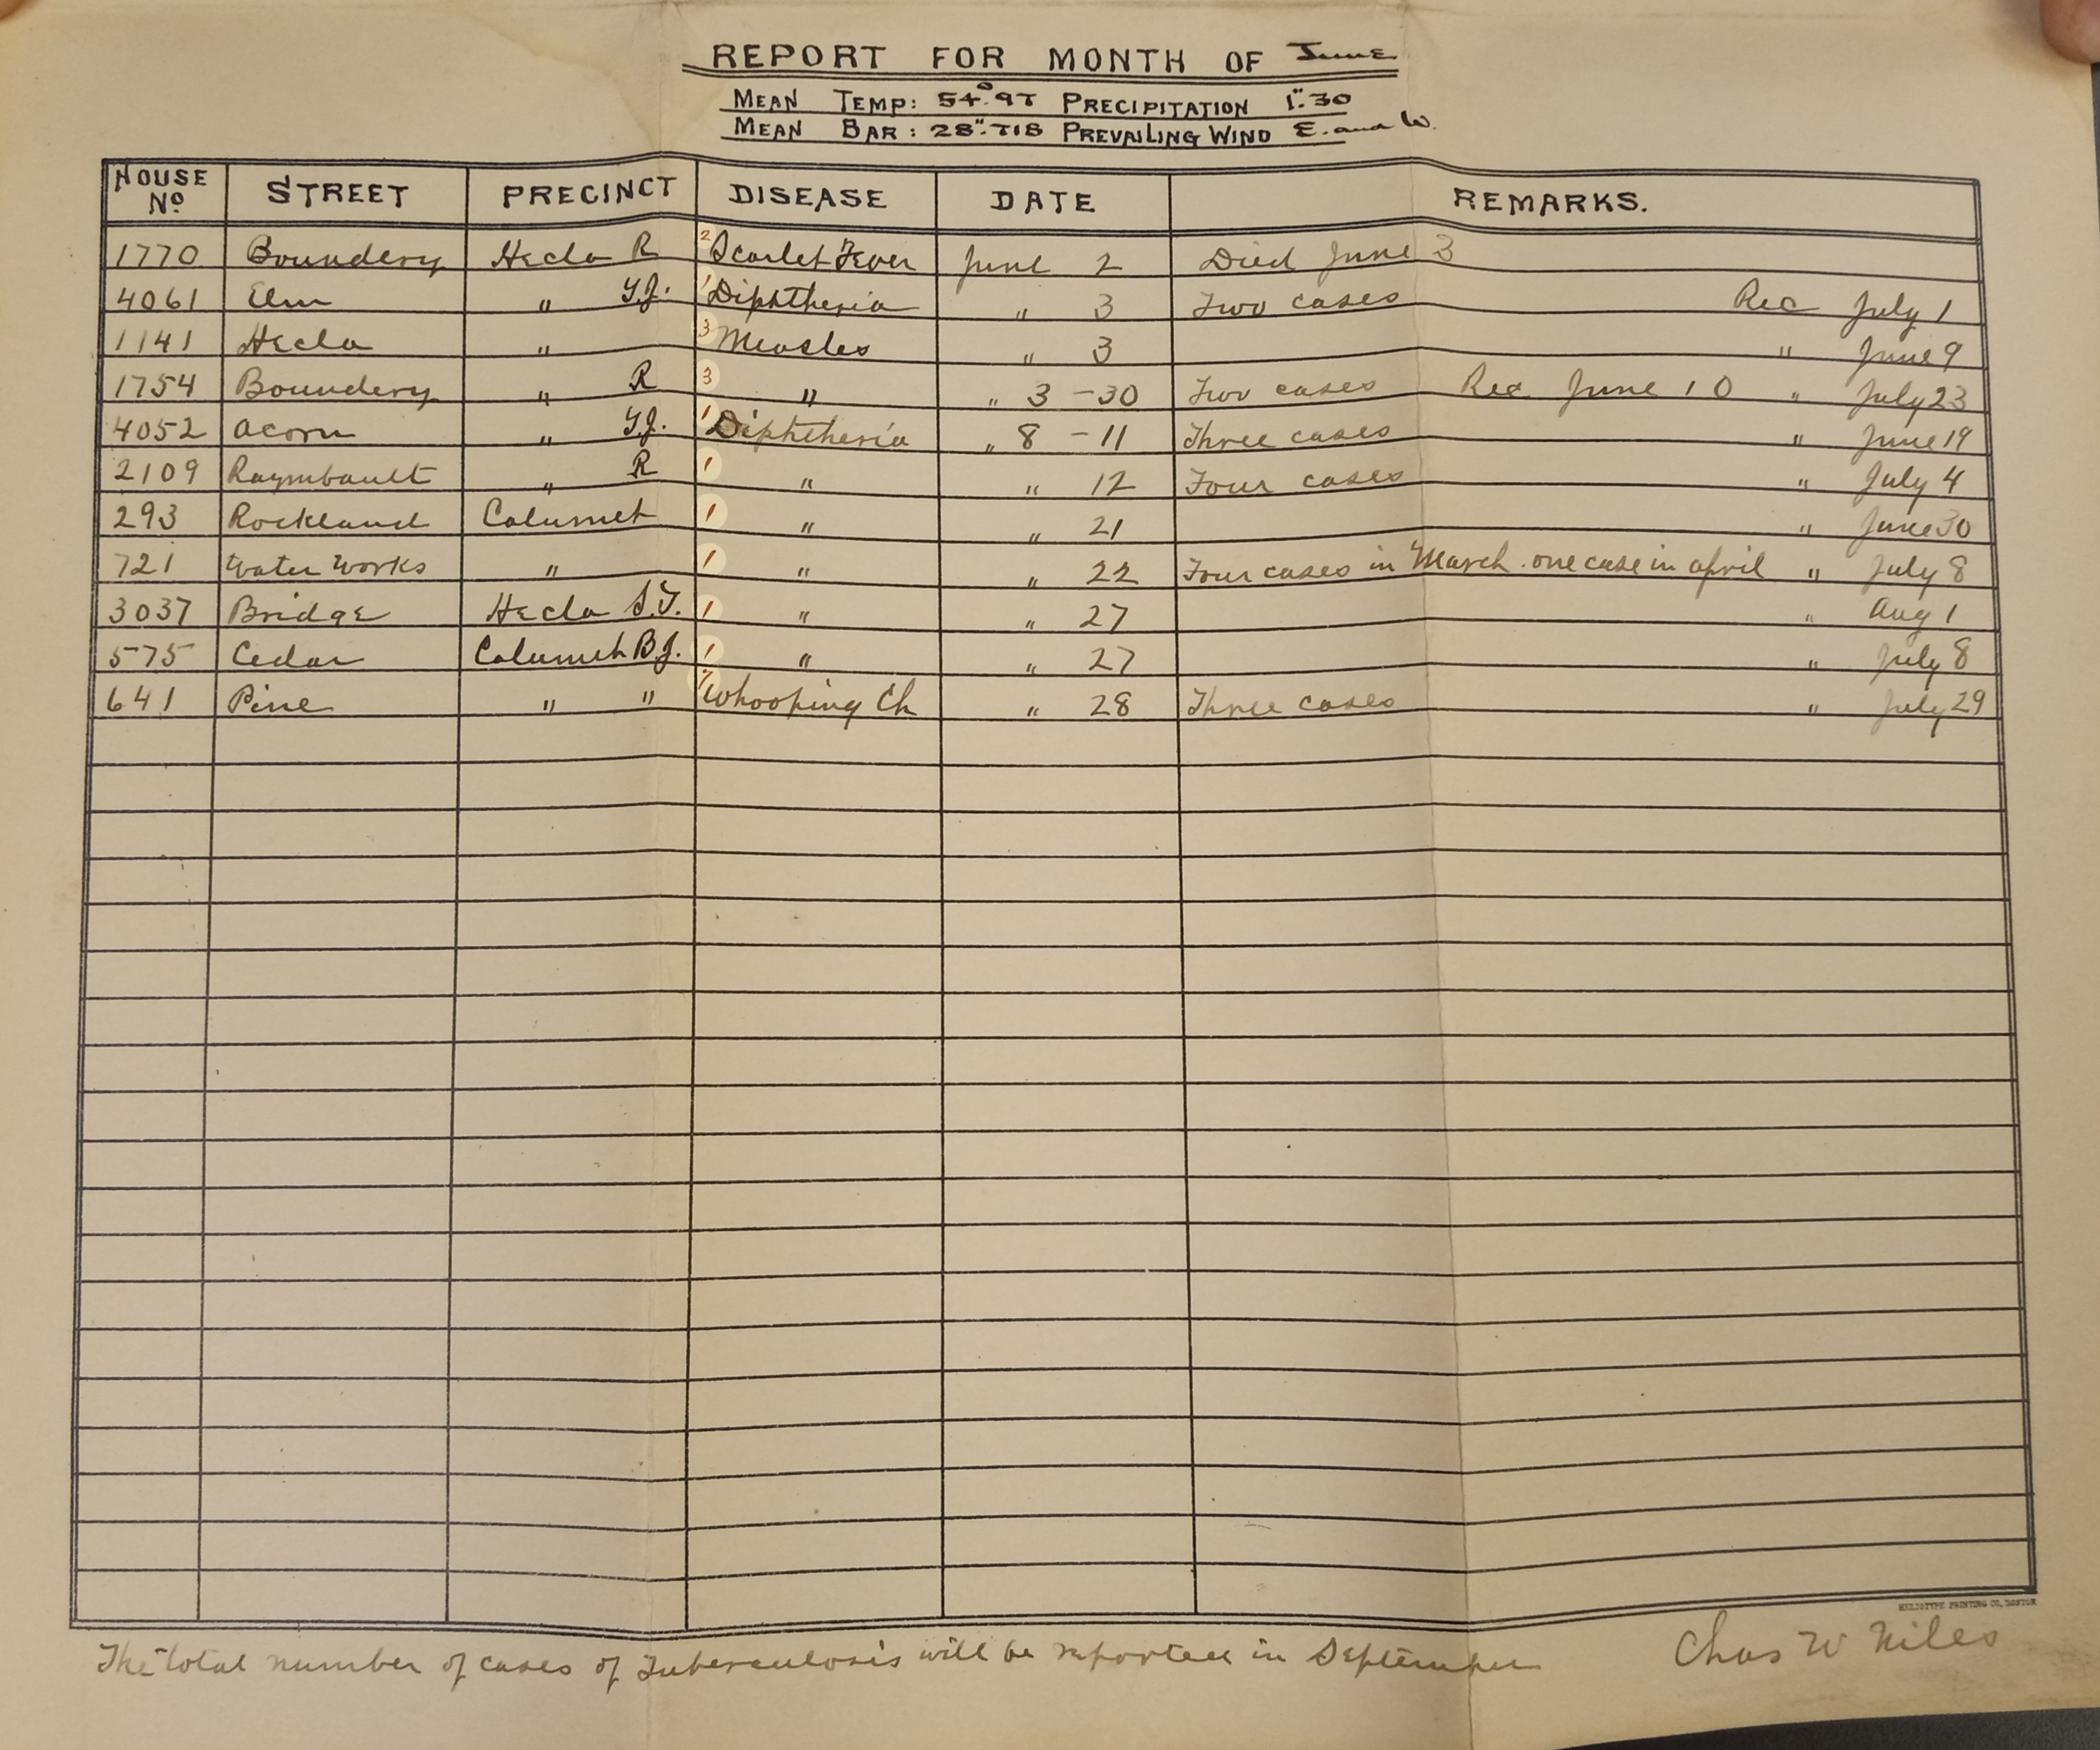 REPORT FOR MONTH OF June
MEAN TEMP: 54°.97 PRECIPITATION 1".30
MEAN BAR: 28".718 PREVAILING WIND E. and W.
HOUSE No STREET PRECINCT DISEASE DATE REMARKS.
1770 Boundery Hecla R 2 Scarlet Fever June 2 Died June 3
4061 Elm " Y.J. 1 Diphtheria " 3 Two cases Rec July 1
1141 Hecla " 3 Measles " 3 " June 9
1754 Boundery " R 3 " " 3 - 30 Two cases Rec June 10 " July 23
4052 Acorn " Y.J. 1 Diphtheria " 8 - 11 Three cases " June 19
2109 Raymbault " R 1 " " 12 Four cases " July 4
293 Rockland Calumet 1 " " 21 " June 30
721 Water Works " 1 " " 22 Four cases in March. one case in april " July 8
3037 Bridge Hecla S.T. 1 " " 27 " Aug 1
575 Cedar Calumet B.J. 1 " " 27 " July 8
641 Pine " " 7 Whooping Ch " 28 Three cases " July 29
HELIOTYPE PRINTING CO., BOSTON
The total number of cases of Tuberculosis will be reported in September Chas W Niles